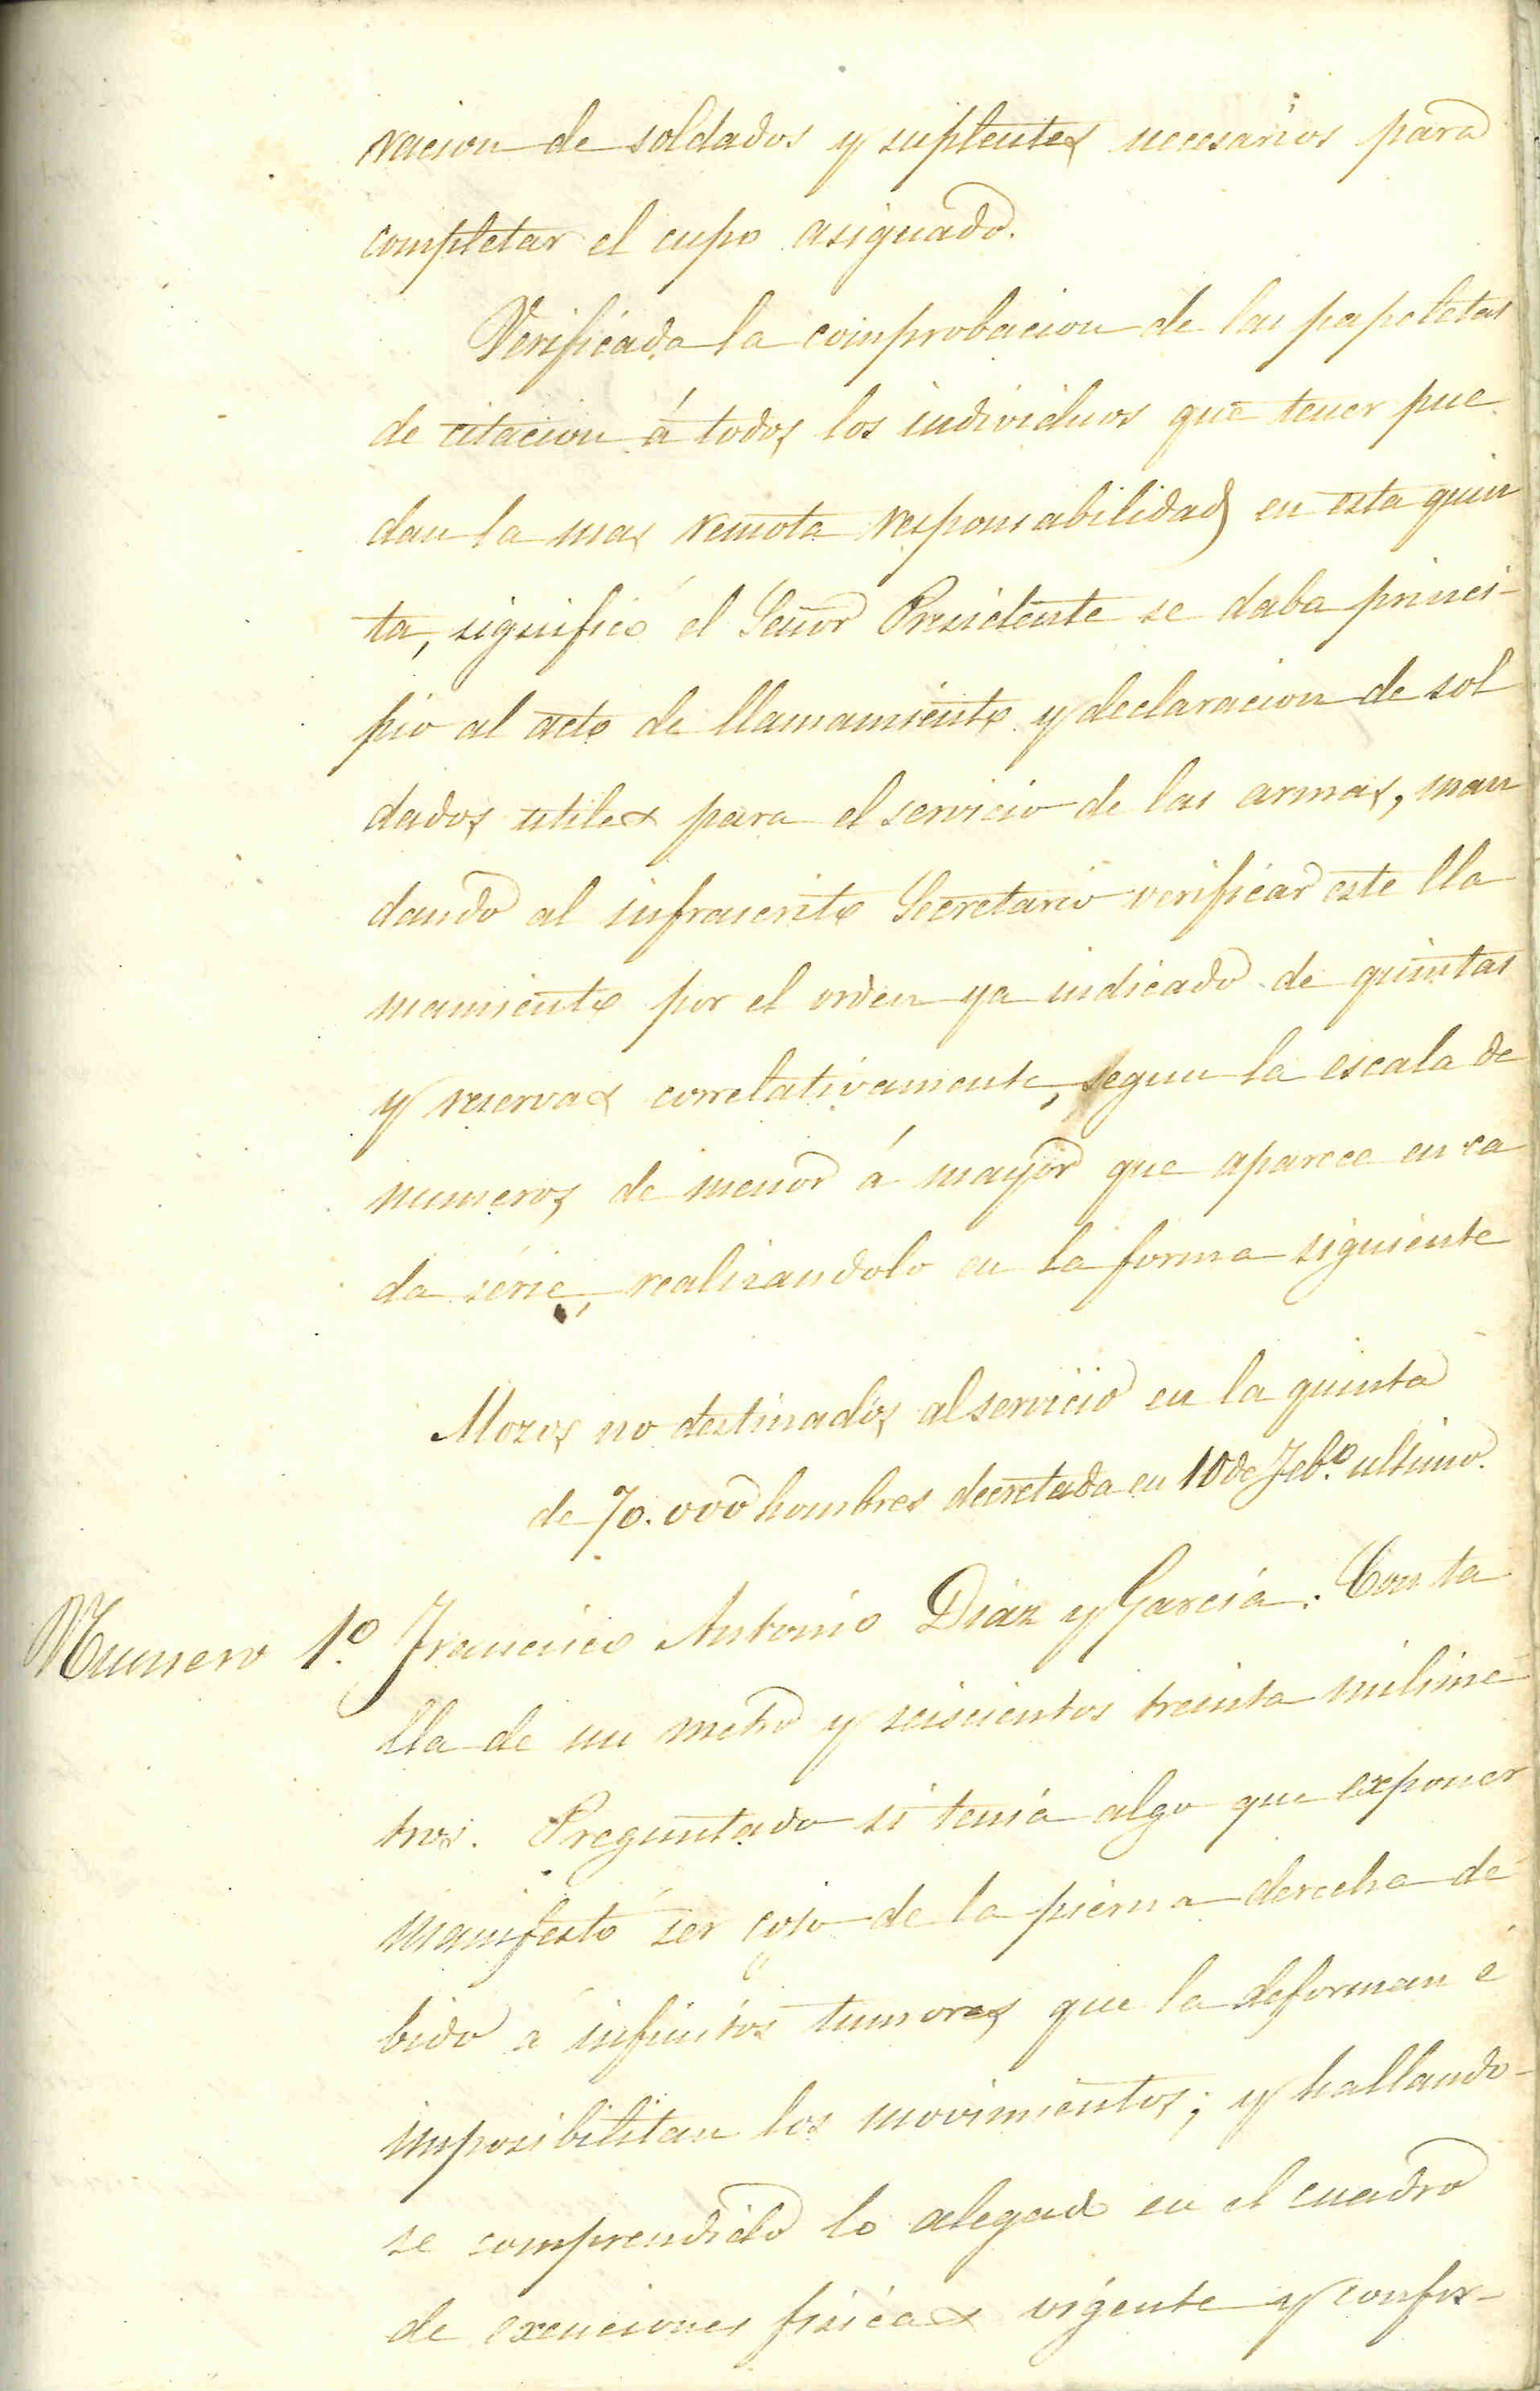 racion de soldados y suplentes necesarios para
completar el cupo asignado.
Verificada la comprobacion de las papeletas
de citacion á todos los individuos que tener pue
dan la mas remota responsabilidad en esta quin
ta, significó el Señor Presidente se daba princi-
pio al acto de llamamiento y declaracion de sol
dados utiles para el servicio de las armas, man
dando al infrascrito Secretario verificar este lla
mamiento por el orden ya indicado de quintas
y reservas correlativamente, segun la escala de
numeros de menor á mayor que aparece en ca
da série, realizandolo en la forma siguiente
Mozos no destinados al servicio en la quinta
de 70.000 hombres decretada en 10 de Feb.º ultimo.
Numero 1.º Francisco Antonio Diaz y Garcia. Con ta
lla de un metro y seiscientos treinta milime
tros. Preguntado si tenia algo que exponer
manifestó ser cojo de la pierna derecha de
bido á infinitos tumores que la deforman é
imposibilitan los movimientos; y hallando-
se comprendido lo alegado en el cuadro
de exenciones fisicas vigente y confor-